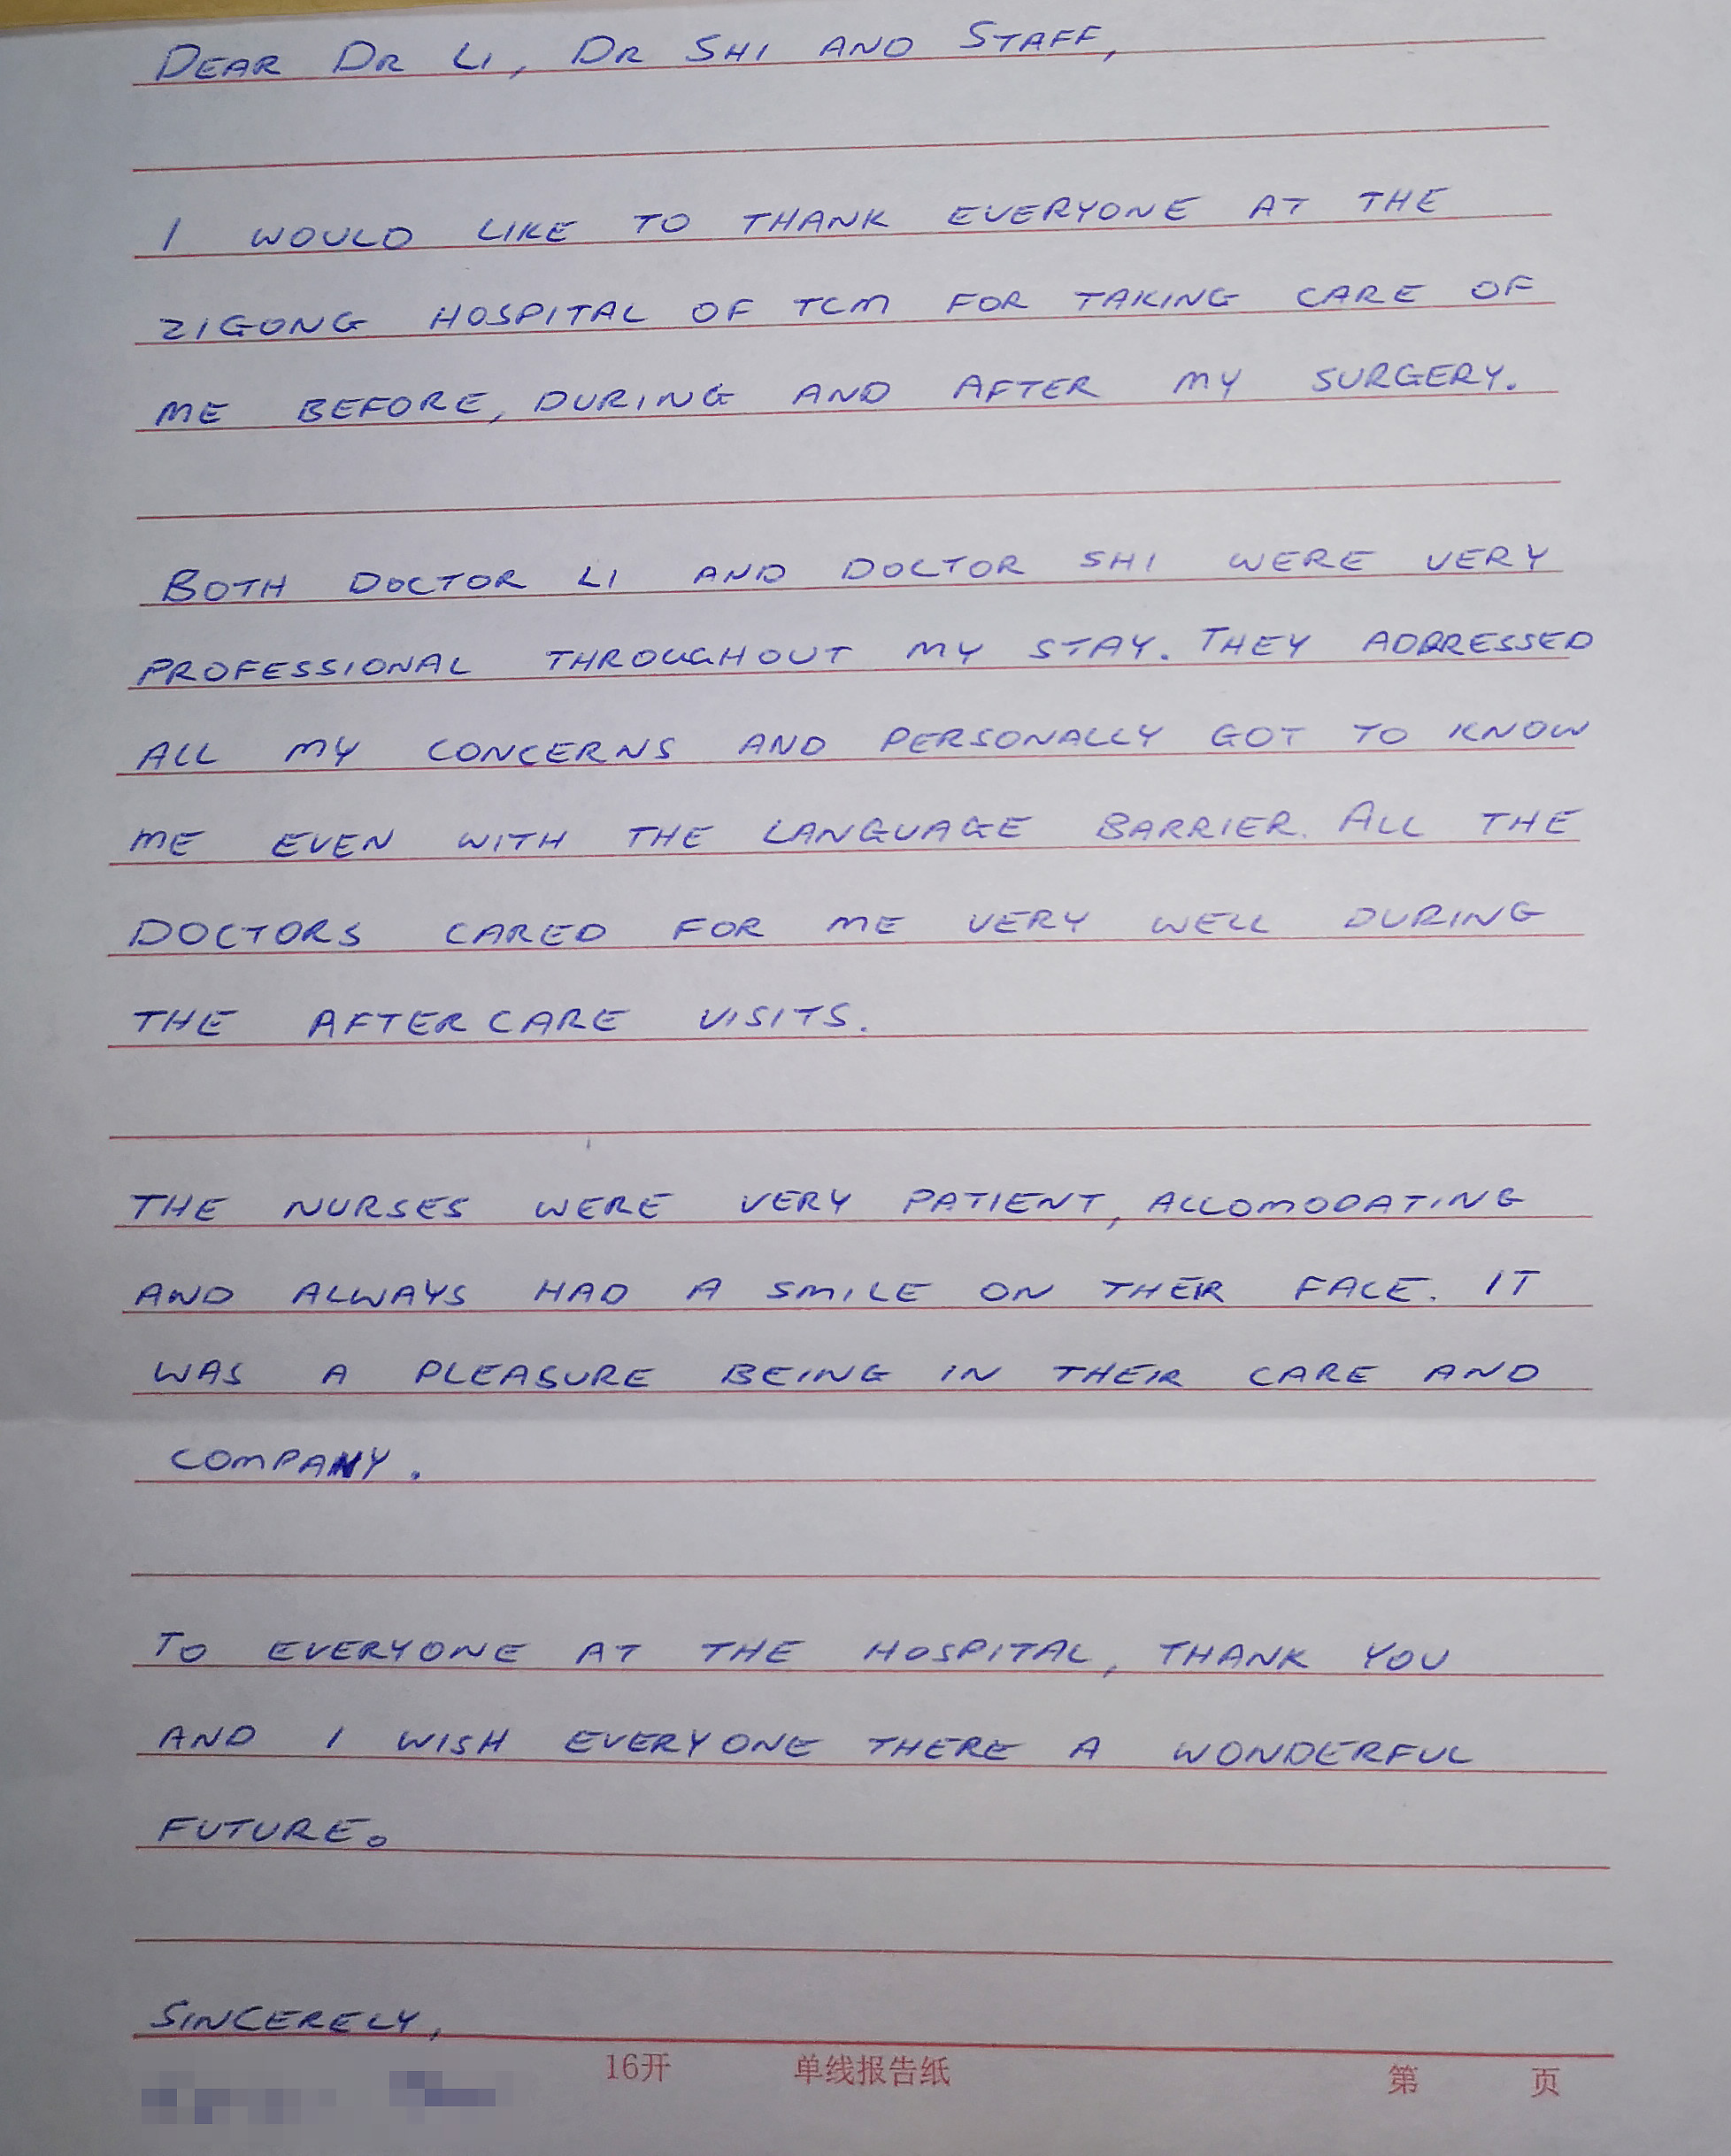 DEAR DR LI, DR SHI AND STAFF,
I WOULD LIKE TO THANK EVERYONE AT THE
ZIGONG HOSPITAL OF TCM FOR TAKING CARE OF
ME BEFORE, DURING AND AFTER MY SURGERY.
BOTH DOCTOR LI AND DOCTOR SHI WERE VERY
PROFESSIONAL THROUGHOUT MY STAY. THEY ADDRESSED
ALL MY CONCERNS AND PERSONALLY GOT TO KNOW
ME EVEN WITH THE LANGUAGE BARRIER. ALL THE
DOCTORS CARED FOR ME VERY WELL DURING
THE AFTERCARE VISITS.
THE NURSES WERE VERY PATIENT, ACCOMODATING
AND ALWAYS HAD A SMILE ON THEIR FACE. IT
WAS A PLEASURE BEING IN THEIR CARE AND
COMPANY.
TO EVERYONE AT THE HOSPITAL, THANK YOU
AND I WISH EVERYONE THERE A WONDERFUL
FUTURE。
SINCERELY,
16开 单线报告纸 第 页